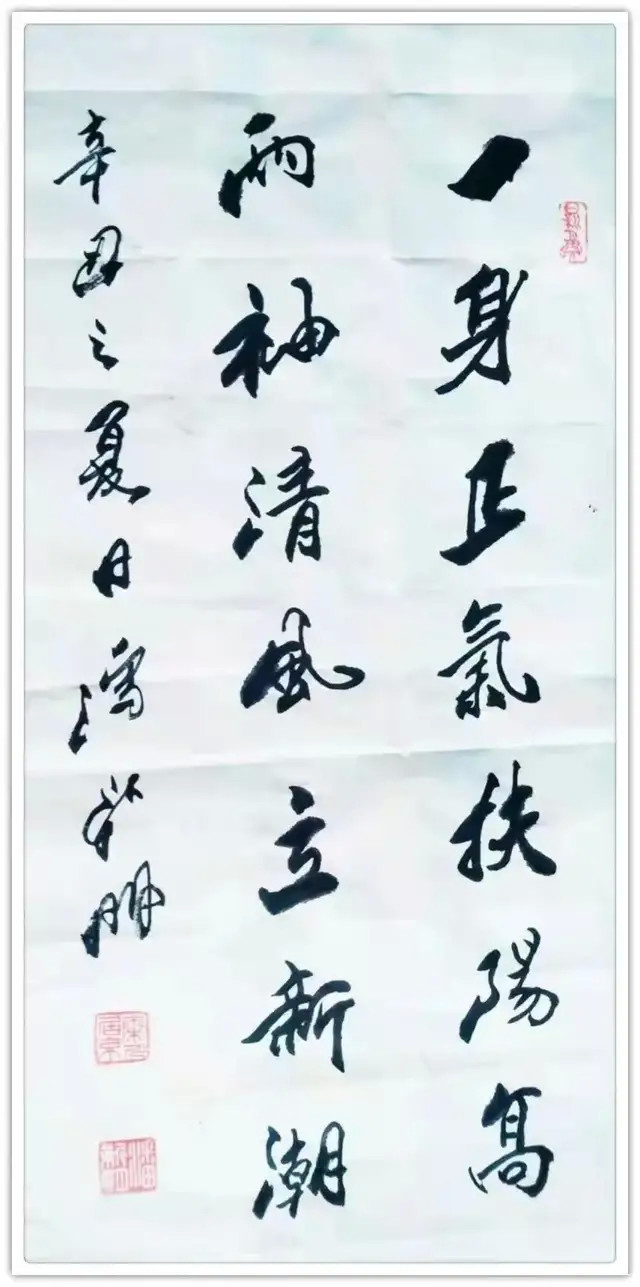 一身正氣扶陽高
兩袖清風立新潮
辛丑之夏月潘荣明